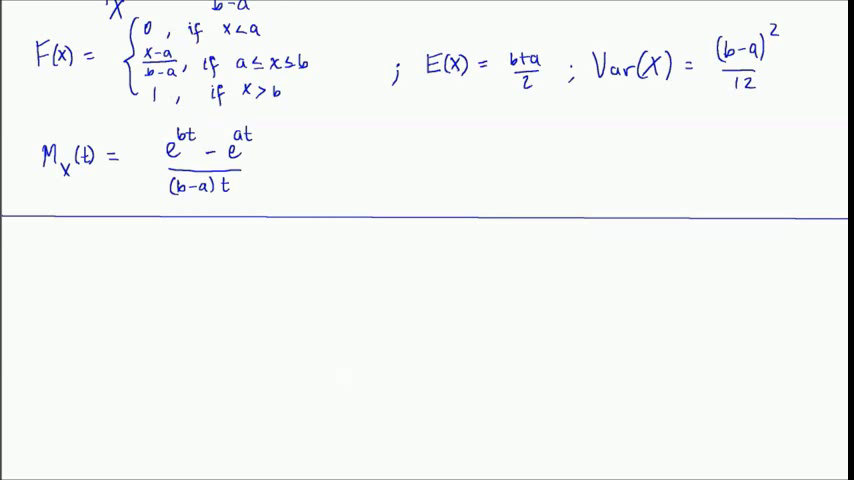 X b-a
F(x) = { 0 , if x<a
x-a/b-a , if a≤x≤b ; E(X) = b+a/2 ; Var(X) = (b-a)²/12
1 , if x>b
M_X(t) = e^bt - e^at / (b-a)t